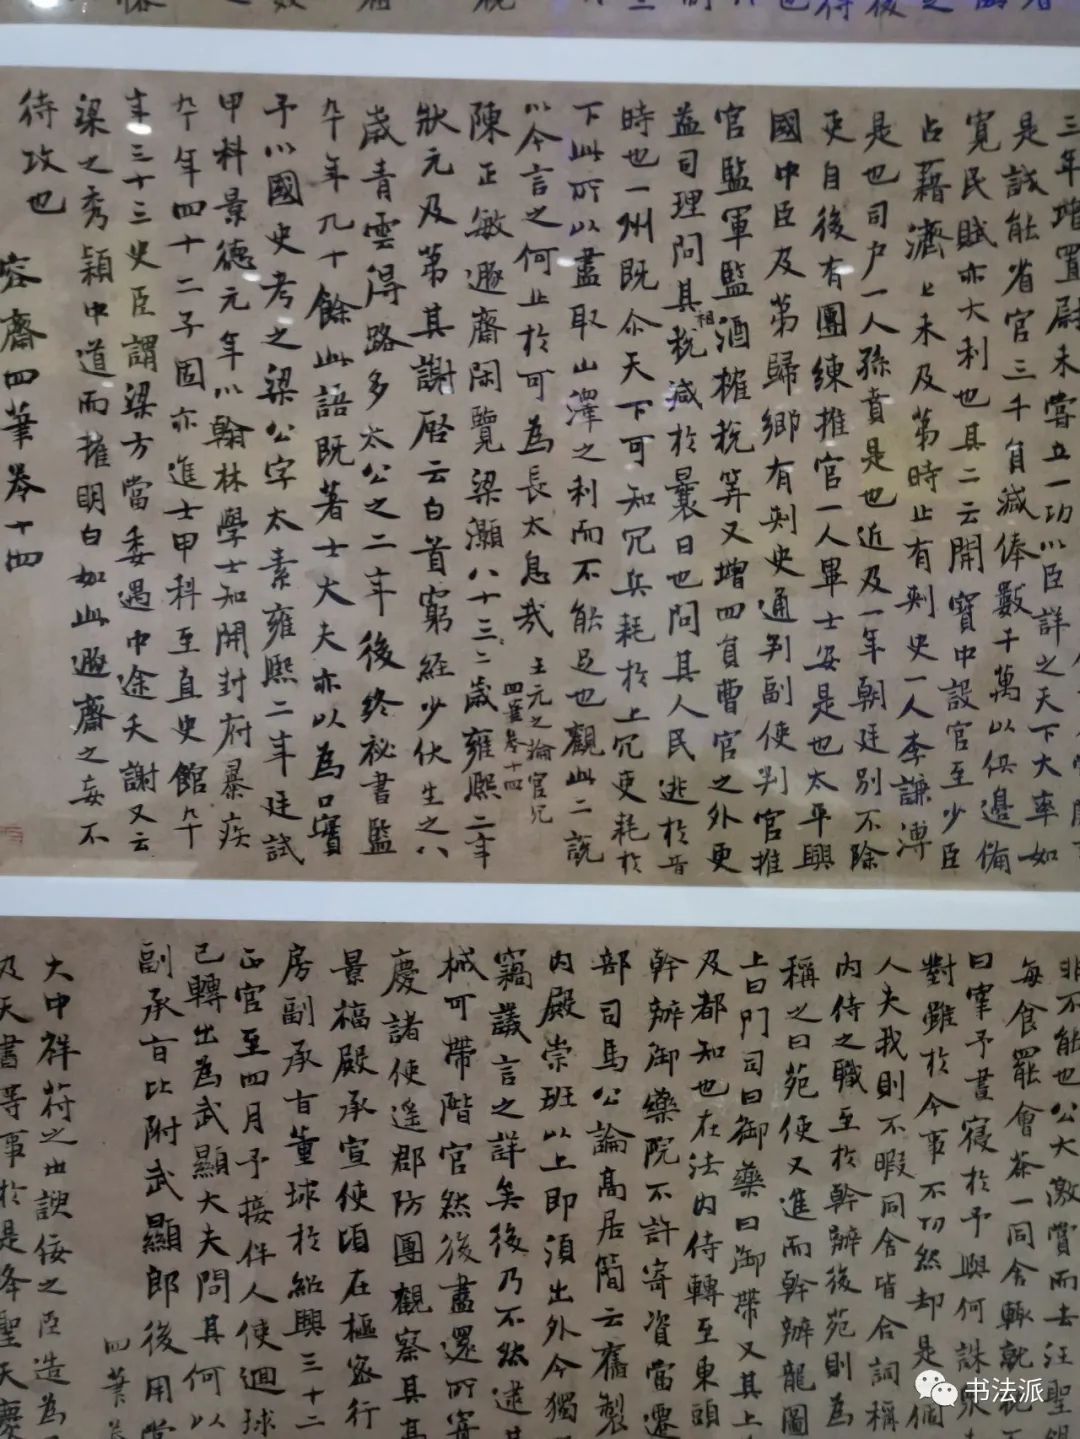 三年增置尉未嘗立一功以臣詳之天下大率如
是誠能省官三千員減俸數千萬以供邊備
寬民賦亦大利也其二云開寶中設官至少臣
占藉濟上未及第時止有刺史一人李謙溥
是也司户一人孫賁是也近及一年朝廷別不除
吏自後有團練推官一人畢士安是也太平興
國中臣及第歸鄉有刺史通判副使判官推
官監軍監酒榷稅筭又增四員曹官之外更
益司理問其租稅減於曩日也問其人民逃於昔
時也一州既尒天下可知冗兵耗於上冗吏耗於
下此所以盡取山澤之利而不能足也觀此二說
以今言之何止於可為長太息哉
王元之論官冗
四筆卷十四
陳正敏遯齋閑覽梁灝八十二歲雍熙二年
狀元及第其謝啓云白首窮經少伏生之八
歲青雲得路多太公之二年後終秘書監
卒年九十餘此語既著士大夫亦以為口實
予以國史考之梁公字太素雍熙二年廷試
甲科景德元年以翰林學士知開封府暴疾
卒年四十二子固亦進士甲科至直史館卒
年三十三史臣謂梁方當委遇中途夭謝又云
梁之秀穎中道而摧明白如此遯齋之妄不
待攻也
容齋四筆卷十四
非不能也公大激賞而去汪聖錫
每食罷會茶一同舍輒就枕
曰宰予晝寢於予與何誅
對雖於今事不切然却是個
人夫我則不暇同舍皆合詞稱
內侍之職至於幹辦後苑則為
稱之曰苑使又進而幹辦龍圖
上曰門司曰御藥曰御帶又其上
及都知也在法內侍轉至東頭
幹辦御藥院不許寄資當遷
部司馬公論高居簡云舊製
內殿崇班以上即須出外今獨
竊議言之詳矣後乃不然逮
械可帶階官然後盡還所寄
慶諸使遙郡防團觀察其高
景福殿承宣使頃在樞密行
房副承旨董球於紹興三十二
正官至四月予接伴人使迴球
已轉出為武顯大夫問其何以
副承旨比附武顯郎後用賞
四筆
大中祥苻之世諛佞之臣造為
及天書等事於是降聖天慶
书法派